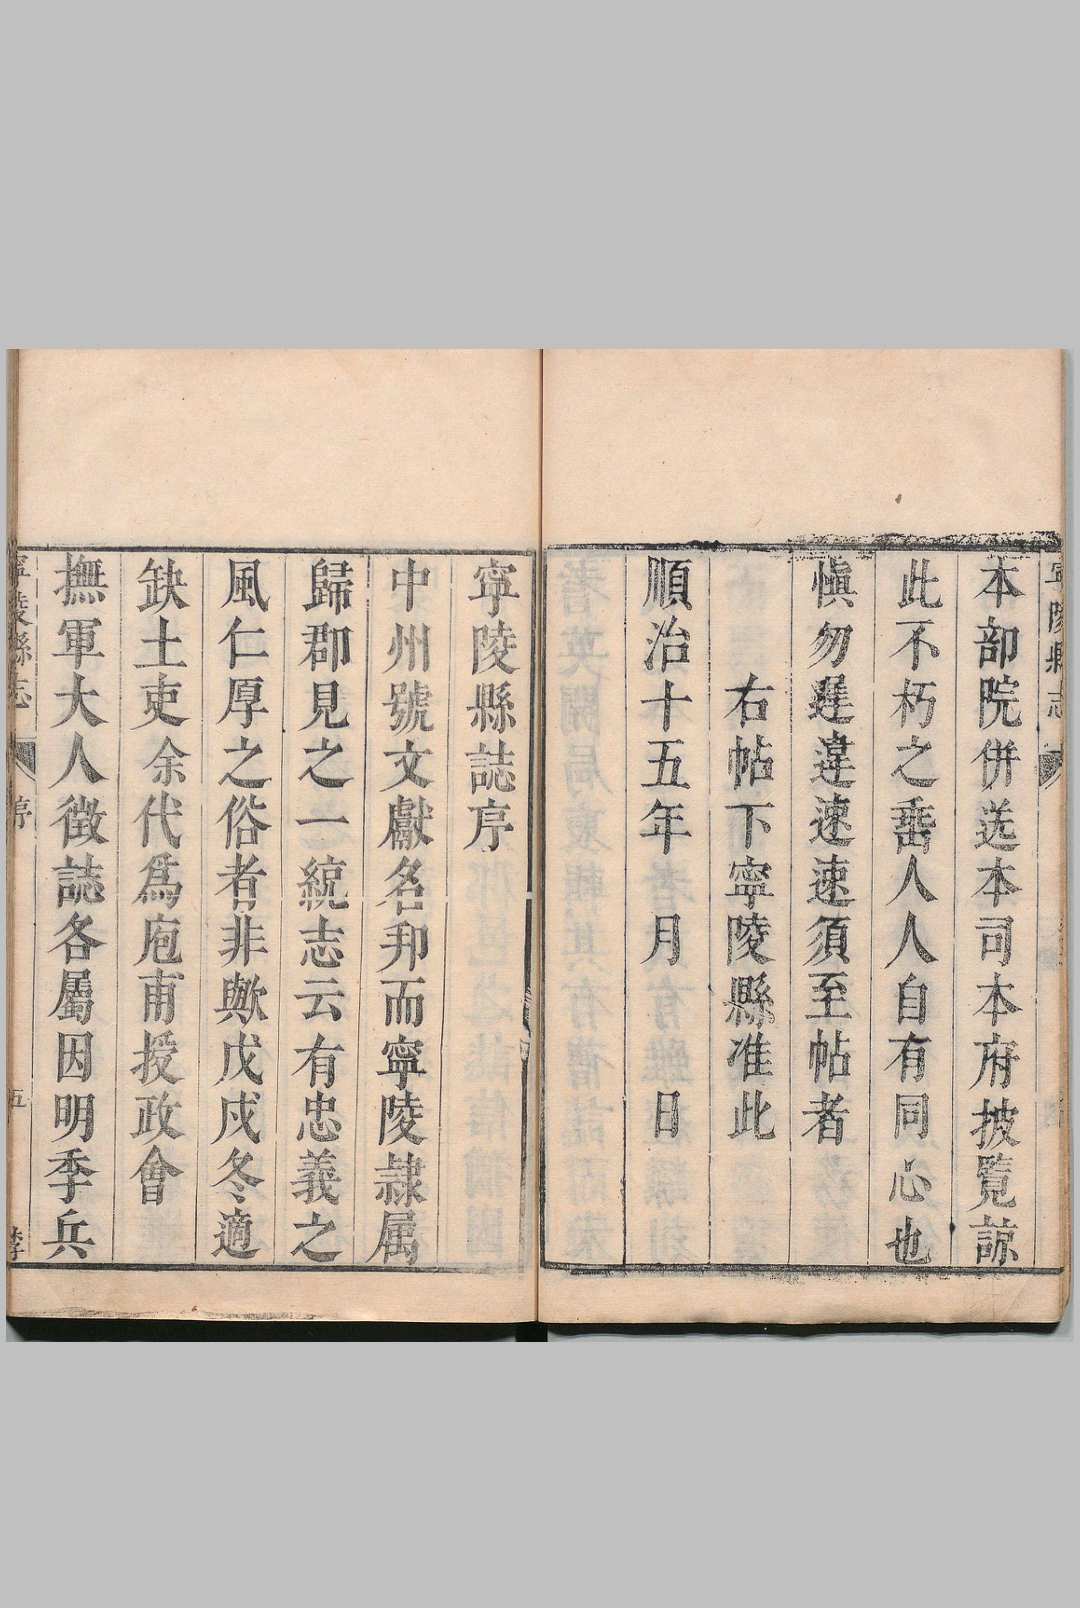 寧陵縣志
本部院併送本司本府披覽諒
此不朽之垂人人自有同心也
慎勿遲違速速須至帖者
右帖下寧陵縣准此
順治十五年 月 日
寧陵縣誌序
中州號文獻名邦而寧陵隷属
歸郡見之一統志云有忠義之
風仁厚之俗者非歟戊戌冬適
缺土吏余代爲庖甫授政會
撫軍大人徵誌各屬因明季兵
寧陵縣志 序 五